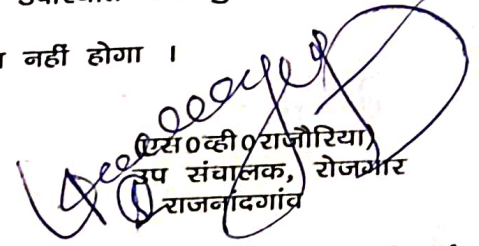 नहीं होगा ।
(एस०व्ही०राजौरिया)
उप संचालक, रोजगार
राजनांदगांव